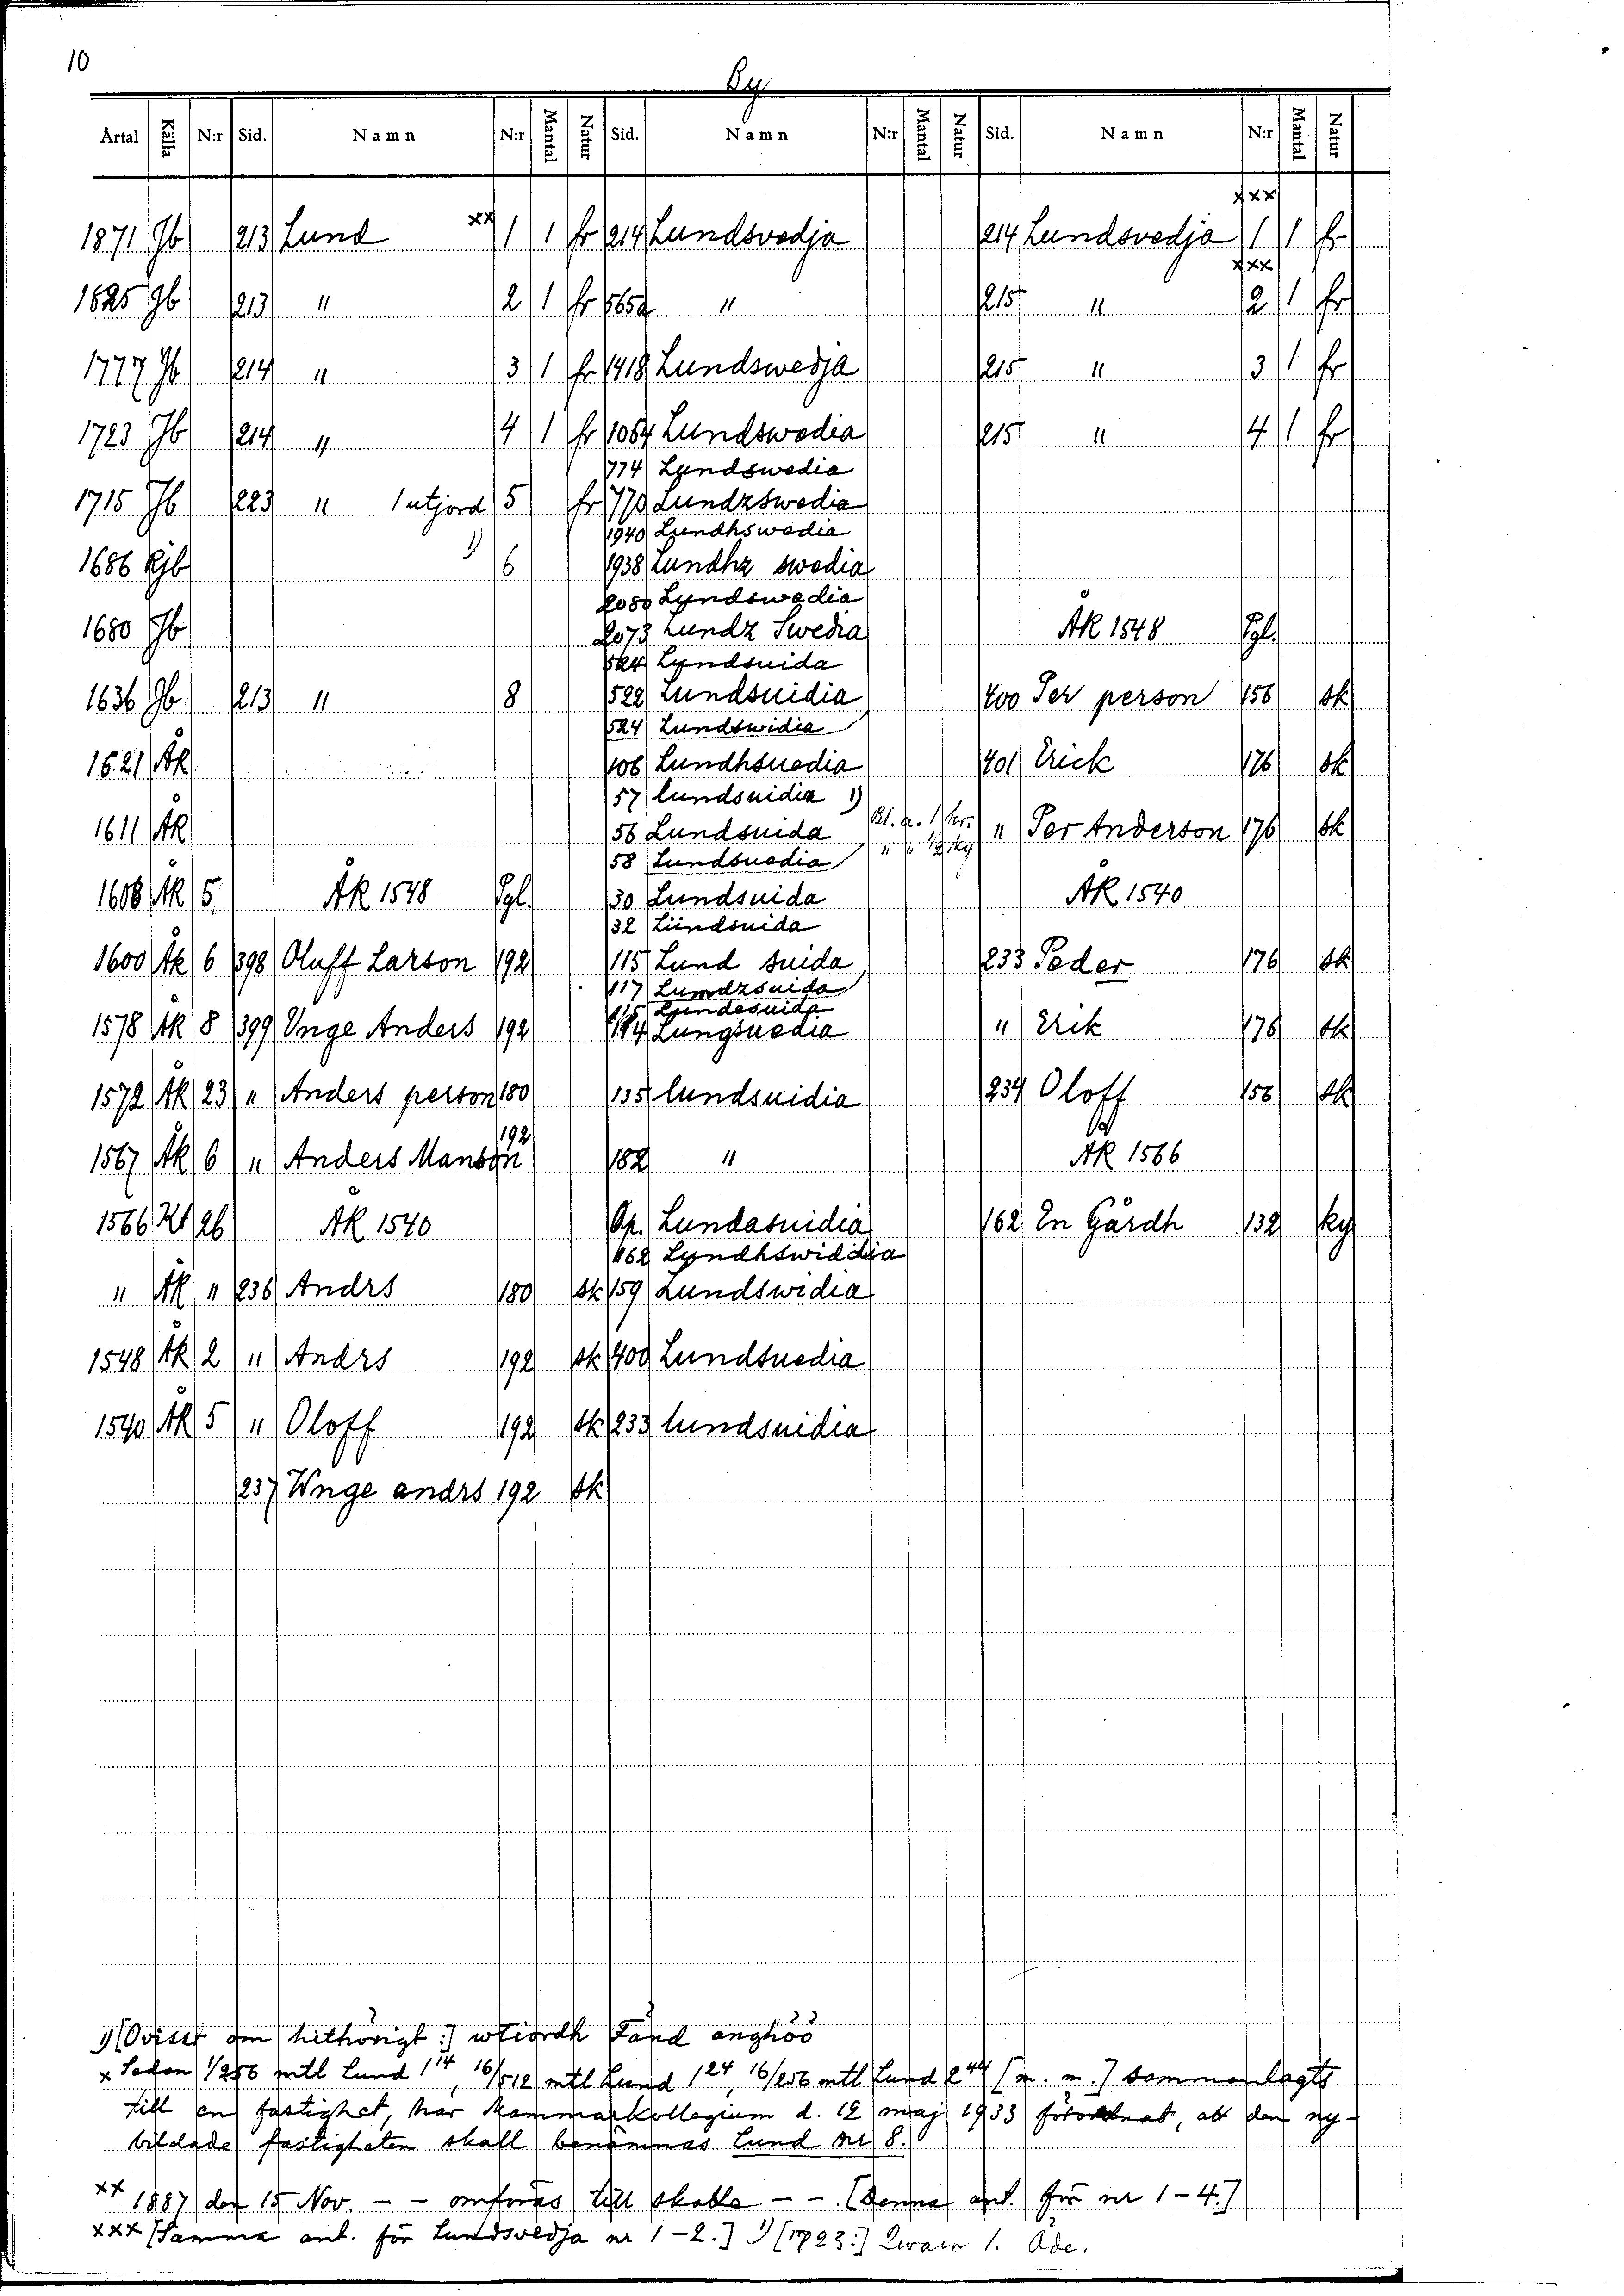 10
By
Årtal Källa N:r Sid. Namn N:r Mantal Natur Sid. Namn N:r Mantal Natur Sid. Namn N:r Mantal Natur
xxx
1871 Jb 213 Lund xx 1 1 fr 214 Lundsvedja 214 Lundsvedja 1 1 fr
xxx
1825 Jb 213 " 2 1 fr 565a " 215 " 2 1 fr
1777 Jb 214 " 3 1 fr 1418 Lundswedja 215 " 3 1 fr
1723 Jb 214 " 4 1 fr 1064 Lundswedia 215 " 4 1 fr
774 Lundswedia
1715 Jb 223 " 1 utjord 5 fr 770 Lundzswedia
1940 Lundhswedia
1686 Rjb 1) 6 1938 Lundhz swedia
2080 Lyndswedia
1680 Jb 2073 Lundz Swedia ÅK 1548 Pgl.
524 Lyndsuida
1636 Jb 213 " 8 522 Lundsuidia 400 Per person 156 sk
524 Lundswidia
1621 ÅK 106 Lundhsuedia 401 Erick 176 sk
57 lundsuidia 1)
1611 ÅK 56 Lundsuida Bl. a. 1 kr. " Per Anderson 176 sk
58 Lundsuedia " " 1/2 ky
1608 ÅK 5 ÅK 1548 Pgl. 30 Lundsuida ÅK 1540
32 Lündsuida
1600 ÅK 6 398 Oluff Larson 192 115 Lund suida 233 Peder 176 sk
117 Lundzsuida
115 Lundesuida
1578 ÅK 8 399 Unge Anders 192 114 Lungsuedia " Erik 176 sk
1572 ÅK 23 " Anders person 180 135 lundsuidia 234 Oloff 156 sk
1567 ÅK 6 " Anders Manson 192 182 " ÅK 1566
1566 Kt 26 ÅK 1540 Op. Lundasuidia 162 En Gårdh 132 ky
162 Lyndhswiddia
" ÅK " 236 Andrs 180 sk 159 Lundswidia
1548 ÅK 2 " Andrs 192 sk 400 Lundsuedia
1540 ÅK 5 " Oloff 192 sk 233 lundsuidia
237 Wnge andrs 192 sk
1) [Ovisst om hithörigt:] wtiordh Fånd anghöö
x Sedan 1/256 mtl Lund 1¹⁴, 16/512 mtl Lund 1²⁴, 16/256 mtl Lund 2⁴⁴ [m. m.] sammanlagts
till en fastighet, har Kammarkollegium d. 12 maj 1933 förordnat, att den ny-
bildade fastigheten skall benämnas Lund nr 8.
xx 1887 den 15 Nov. - - omföras till skatte - - . [Denna ant. för nr 1-4.]
xxx [Samma ant. för Lundsvedja nr 1-2.] 1) [1723:] Qwarn 1. Öde.